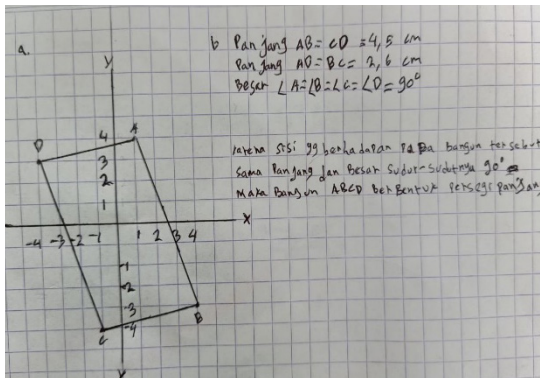 a.
b Panjang AB = CD = 4,5 cm
Panjang AD = BC = 2,6 cm
Besar ∠A = ∠B = ∠C = ∠D = 90°
karena sisi yg berhadapan pada bangun tersebut
sama panjang dan Besar sudut-sudutnya 90°
maka Bangun ABCD berbentuk persegi panjang
y
4 A
D
3
2
1
-4 -3 -2 -1 1 2 3 4 x
-1
-2
-3
B
C -4